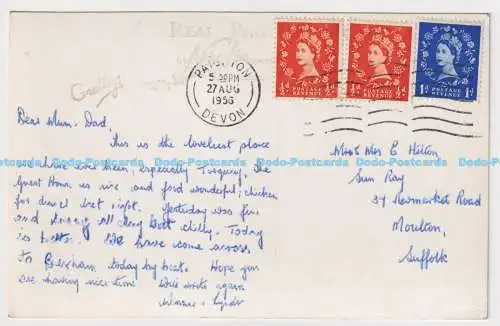 REAL PHOTO
Greetings
PAIGNTON
5.30PM
27 AUG
1956
DEVON
½d POSTAGE REVENUE ½d
½d POSTAGE REVENUE ½d
1d POSTAGE REVENUE 1d
Dear Mum, Dad,
This is the loveliest place
we have ever been, especially Torquay. The
Guest House is nice and food wonderful; chicken
for dinner last night. Yesterday was fine
and sunny all day but chilly. Today
is better. We have come across
to Brixham today by boat. Hope you
are having nice time. Will write again
Mr & Mrs E Hilton
Sun Ray
34 Newmarket Road
Moulton,
Suffolk
Dodo-Postcards Dodo-Postcards Dodo-Postcards Dodo-Postcards Dodo-Postcards